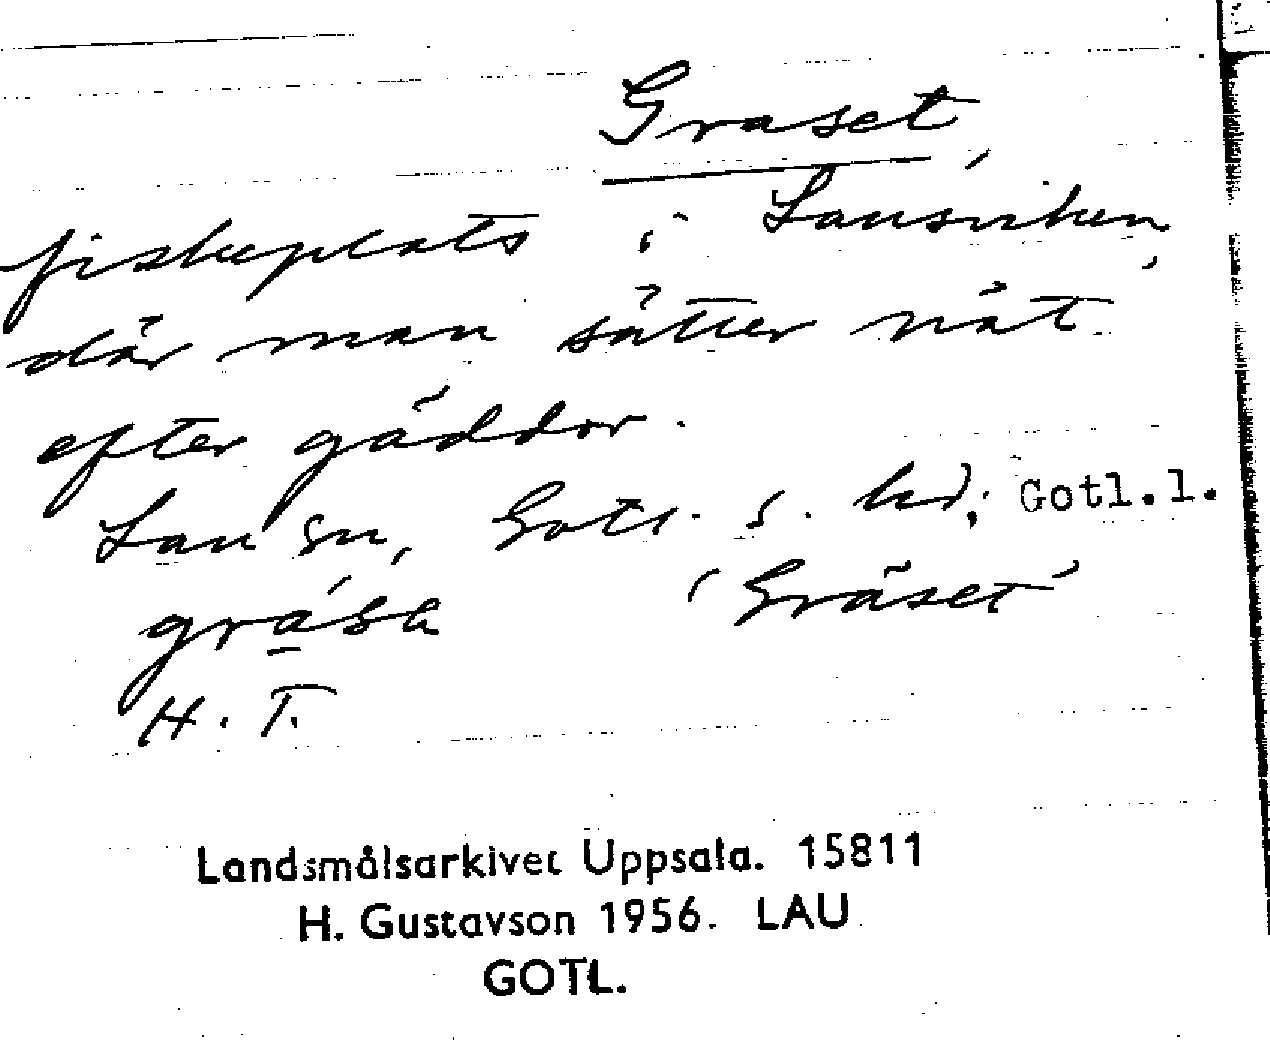 Graset,
fiskeplats i Lausviken,
där man sätter nät
efter gäddor.
Lau sn, Gotl. s. hd, Gotl.l.
grása 'Gräset'
H. T.
Landsmålsarkivet Uppsala. 15811
H. Gustavson 1956. LAU
GOTL.